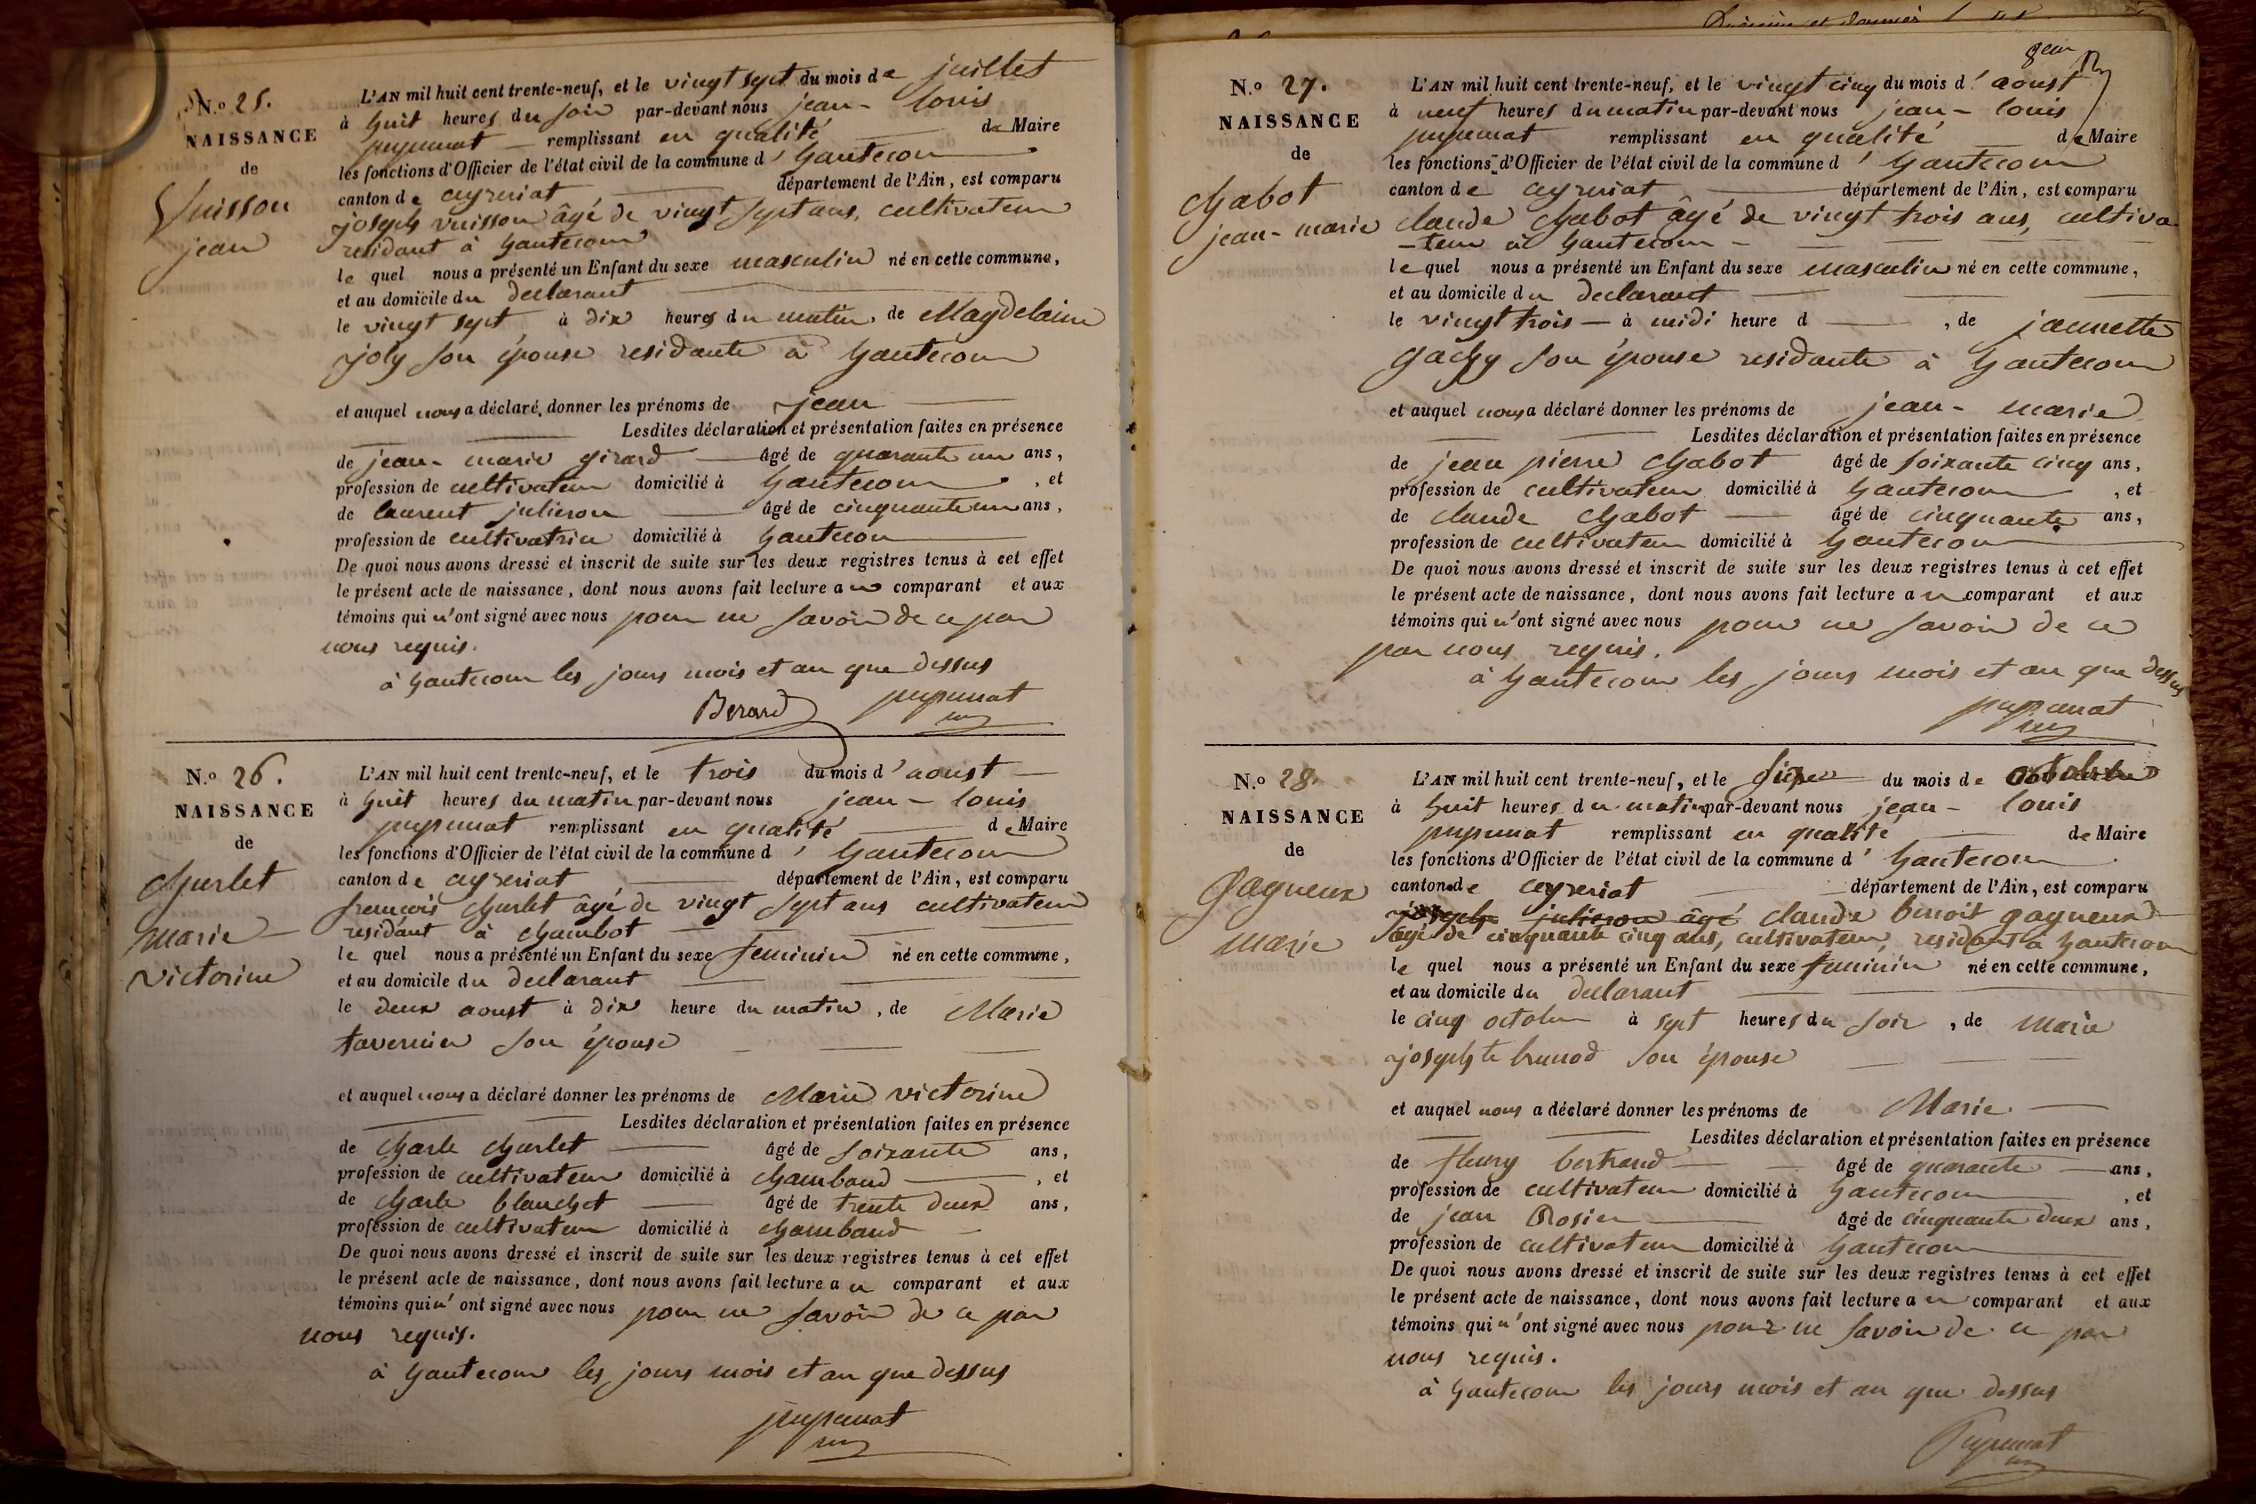 N.o 25.
NAISSANCE
de
Vuisson
jean
L'AN mil huit cent trente-neuf, et le vingt sept du mois de juillet
à huit heures du soir par-devant nous jean - louis
pupunat remplissant en qualité de Maire
les fonctions d'Officier de l'état civil de la commune d'hautecour
canton de ceyzeriat département de l'Ain, est comparu
joseph vuisson âgé de vingt sept ans, cultivateur
residant à hautecour
le quel nous a présenté un Enfant du sexe masculin né en cette commune,
et au domicile du declarant
le vingt sept à dix heures du matin, de Magdelaine
joly son épouse residante à hautecour
et auquel nous a déclaré donner les prénoms de jean
Lesdites déclaration et présentation faites en présence
de jean - marie girard âgé de quarante un ans,
profession de cultivateur domicilié à hautecour, et
de laurent julieron âgé de cinquante un ans,
profession de cultivateur domicilié à hautecour
De quoi nous avons dressé et inscrit de suite sur les deux registres tenus à cet effet
le présent acte de naissance, dont nous avons fait lecture au comparant et aux
témoins qui n'ont signé avec nous pour ne savoir de ce par
nous requis.
à hautecour les jours mois et an que dessus
Berard pupunat
N.o 26.
NAISSANCE
de
Churlet
marie
victorine
L'AN mil huit cent trente-neuf, et le trois du mois d'aoust
à huit heures du matin par-devant nous jean - louis
pupunat remplissant en qualité de Maire
les fonctions d'Officier de l'état civil de la commune d'hautecour
canton de ceyzeriat département de l'Ain, est comparu
francois churlet âgé de vingt sept ans cultivateur
residant à chambot
le quel nous a présenté un Enfant du sexe feminin né en cette commune,
et au domicile du declarant
le deux aoust à dix heure du matin, de Marie
tavernier son épouse
et auquel nous a déclaré donner les prénoms de Marie victorine
Lesdites déclaration et présentation faites en présence
de charle churlet âgé de soixante ans,
profession de cultivateur domicilié à chambaud, et
de charle blanchet âgé de trente deux ans,
profession de cultivateur domicilié à chambaud
De quoi nous avons dressé et inscrit de suite sur les deux registres tenus à cet effet
le présent acte de naissance, dont nous avons fait lecture au comparant et aux
témoins qui n'ont signé avec nous pour ne savoir de ce par
nous requis.
à hautecour les jours mois et an que dessus
pupunat
N.o 27.
NAISSANCE
de
Chabot
jean - marie
L'AN mil huit cent trente-neuf, et le vingt cinq du mois d'aoust
à neuf heures du matin par-devant nous jean - louis
pupunat remplissant en qualité de Maire
les fonctions d'Officier de l'état civil de la commune d'hautecour
canton de ceyzeriat département de l'Ain, est comparu
claude chabot âgé de vingt trois ans, cultiva
-teur à hautecour
le quel nous a présenté un Enfant du sexe masculin né en cette commune,
et au domicile du declarant
le vingt trois à midi heure d, de jannette
gachy son épouse residante à hautecour
et auquel nous a déclaré donner les prénoms de jean - marie
Lesdites déclaration et présentation faites en présence
de jean pierre chabot âgé de soixante cinq ans,
profession de cultivateur domicilié à hautecour, et
de claude chabot âgé de cinquante ans,
profession de cultivateur domicilié à hautecour
De quoi nous avons dressé et inscrit de suite sur les deux registres tenus à cet effet
le présent acte de naissance, dont nous avons fait lecture au comparant et aux
témoins qui n'ont signé avec nous pour ne savoir de ce
par nous requis.
à hautecour les jours mois et an que dessus
pupunat
N.o 28.
NAISSANCE
de
Gagneux
marie
L'AN mil huit cent trente-neuf, et le six du mois de octobre
à huit heures du matin par-devant nous jean - louis
pupunat remplissant en qualité de Maire
les fonctions d'Officier de l'état civil de la commune d'hautecour
canton de ceyzeriat département de l'Ain, est comparu
joseph julieron âgé claude benoit gagneux
âgé de cinquante cinq ans, cultivateur, residant à hautecour
le quel nous a présenté un Enfant du sexe feminin né en cette commune,
et au domicile du declarant
le cinq octobre à sept heures du soir, de marie
josephte brunod son épouse
et auquel nous a déclaré donner les prénoms de Marie
Lesdites déclaration et présentation faites en présence
de fleury bertrand âgé de quarante ans,
profession de cultivateur domicilié à hautecour, et
de jean Rosier âgé de cinquante deux ans,
profession de cultivateur domicilié à hautecour
De quoi nous avons dressé et inscrit de suite sur les deux registres tenus à cet effet
le présent acte de naissance, dont nous avons fait lecture au comparant et aux
témoins qui n'ont signé avec nous pour ne savoir de ce par
nous requis.
à hautecour les jours mois et an que dessus
Pupunat